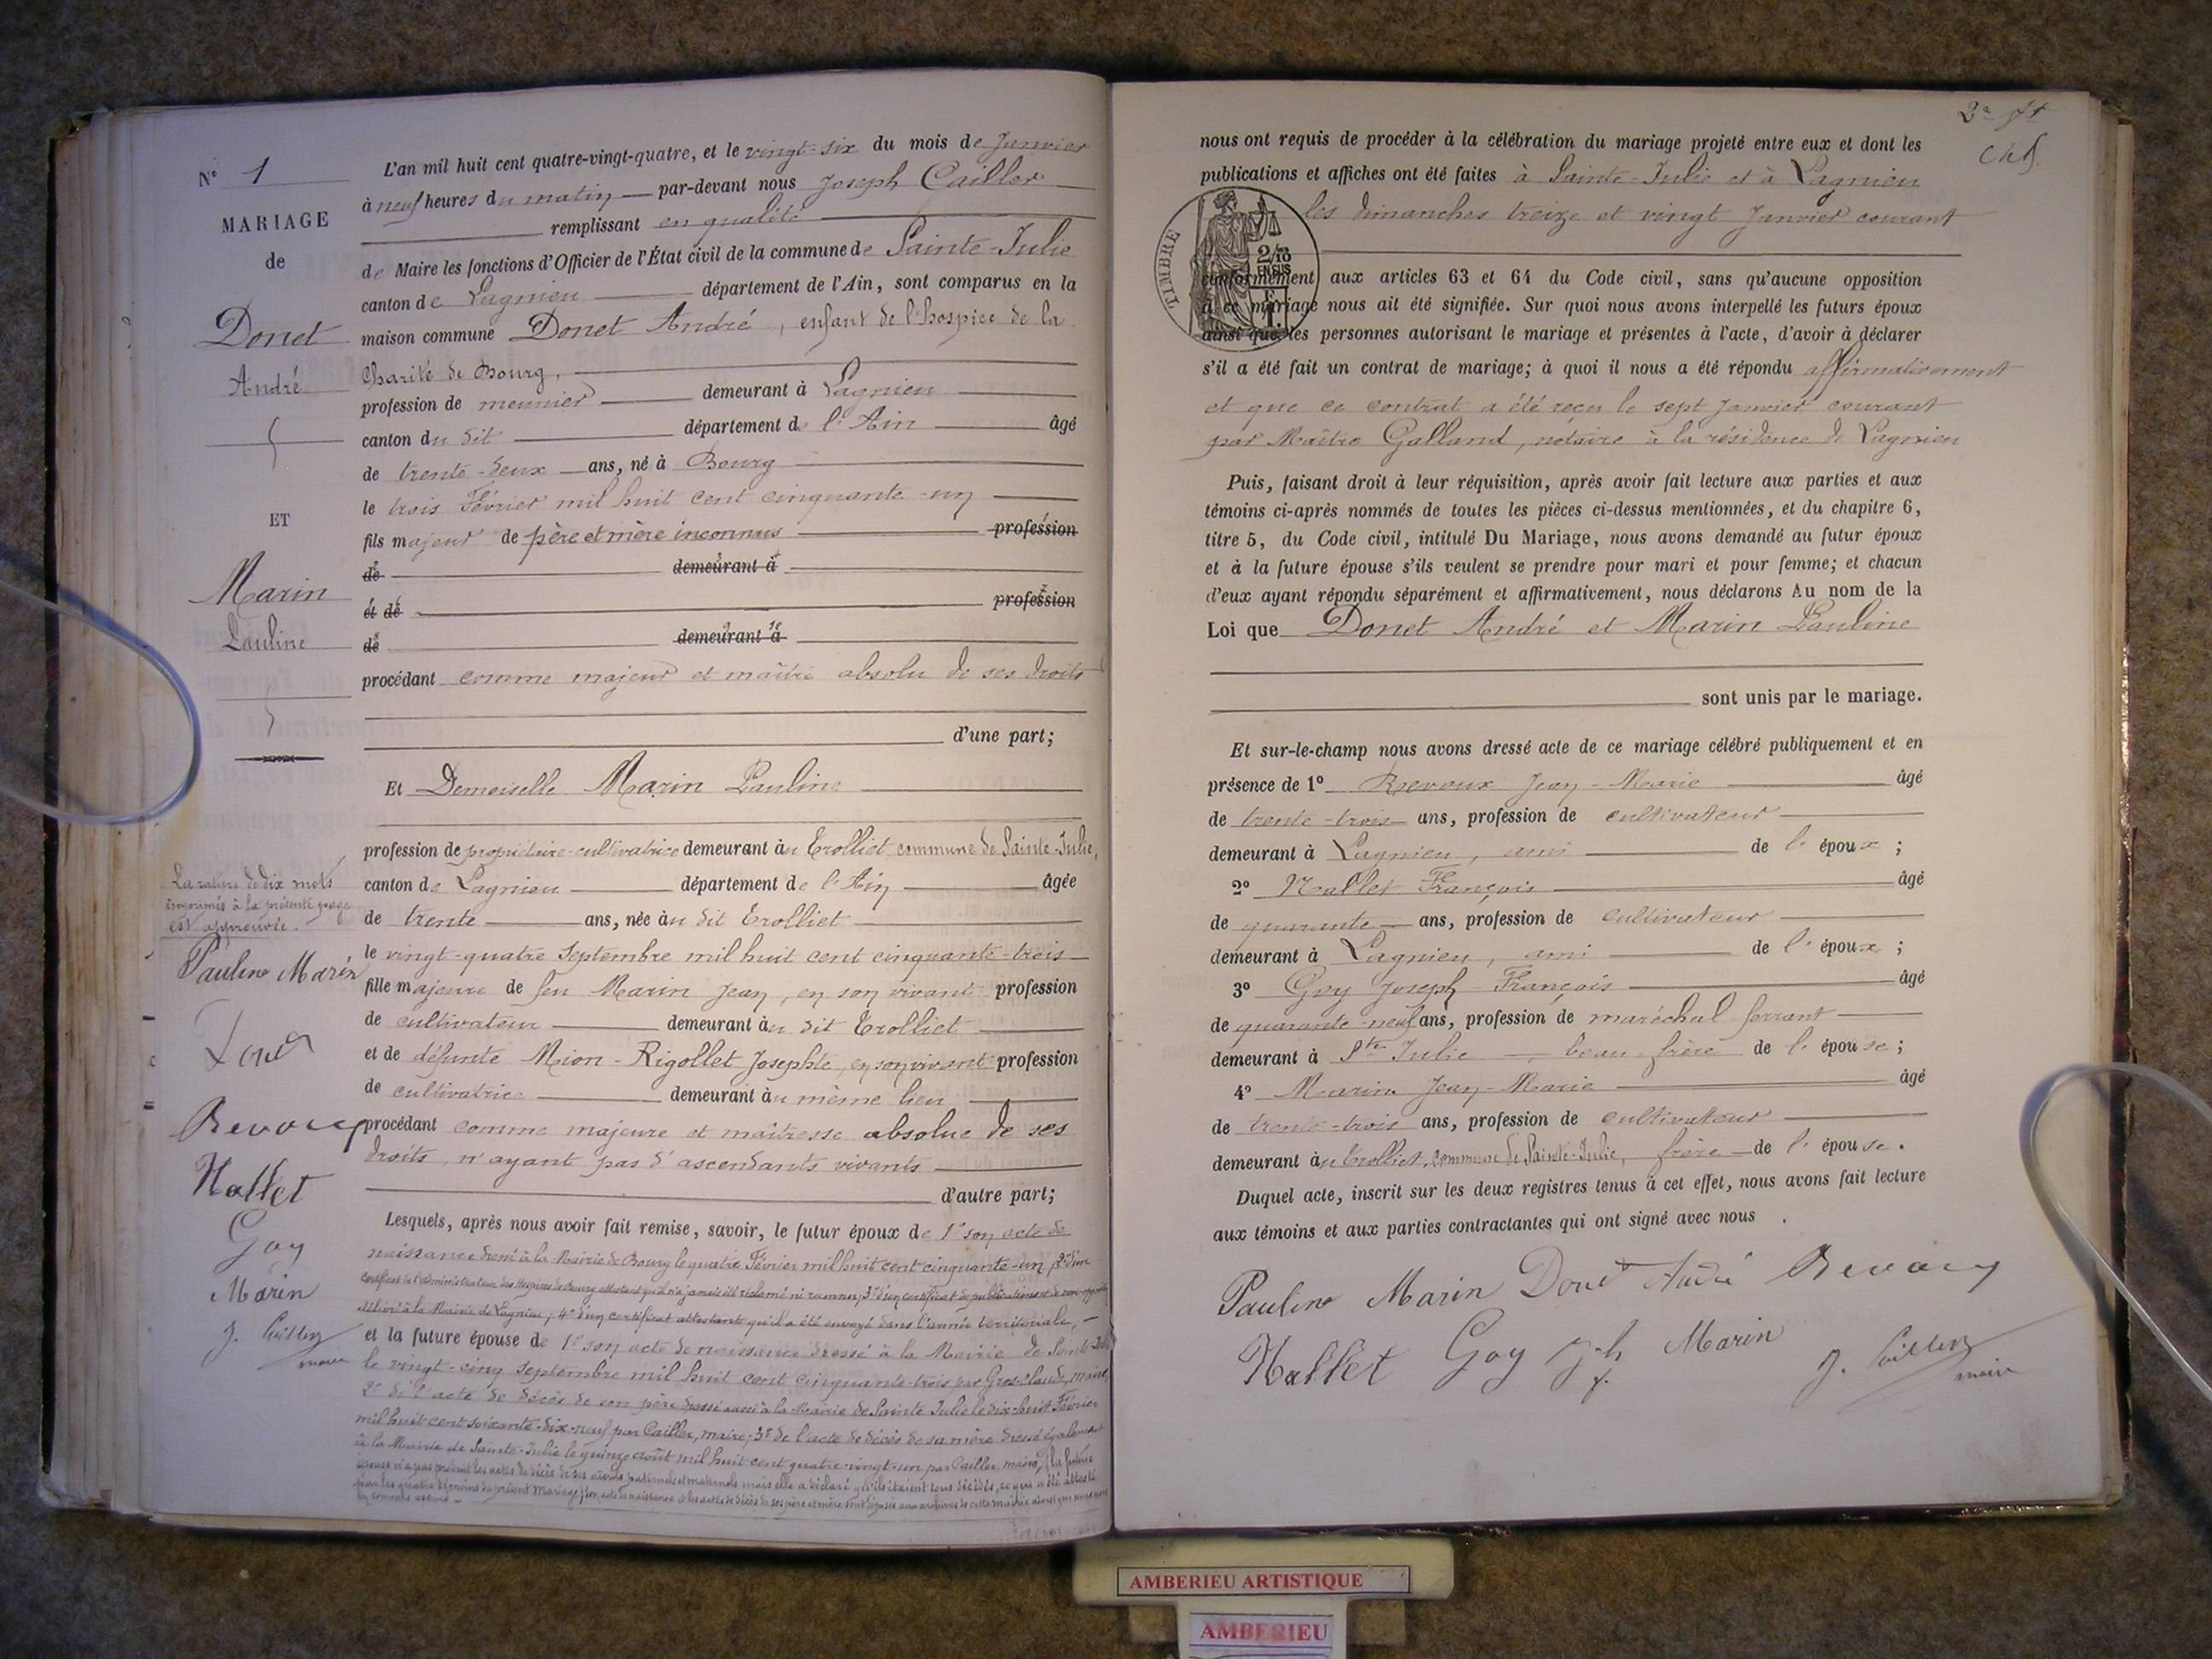 N° 1
MARIAGE
de
Donet
André
ET
Marin
Pauline
La rature de dix mots
imprimés à la présente page
est approuvée.
Pauline Marin
Donet
Nallet
Goy
Marin
maire
L'an mil huit cent quatre-vingt-quatre, et le vingt-six du mois de Janvier
à neuf heures du matin par-devant nous Joseph Cailler
remplissant en qualité
de Maire les fonctions d'Officier de l'État civil de la commune de Sainte-Julie
canton de Lagnieu département de l'Ain, sont comparus en la
maison commune Donet André, enfant de l'hospice de la
Charité de Bourg,
profession de meunier demeurant à Lagnieu
canton du dit département de l'Ain âgé
de trente-deux ans, né à Bourg
le trois Février mil huit cent cinquante-un
fils majeur de père et mère inconnus profession
de demeurant à
et de profession
de demeurant à
procédant comme majeur et maître absolu de ses droits
d'une part;
Et Demoiselle Marin Pauline
profession de propriétaire-cultivatrice demeurant au Trolliet commune de Sainte-Julie,
canton de Lagnieu département de l'Ain âgée
de trente ans, née au dit Trolliet
le vingt-quatre Septembre mil huit cent cinquante-trois
fille majeure de feu Marin Jean, en son vivant profession
de cultivateur demeurant au dit Trolliet
et de défunte Mion-Rigollet Josephte, en son vivant profession
de cultivatrice demeurant au même lieu
procédant comme majeure et maîtresse absolue de ses
droits n'ayant pas d'ascendants vivants
d'autre part;
Lesquels, après nous avoir fait remise, savoir, le futur époux de 1° son acte de
naissance dressé à la Mairie de Bourg le quatre Février mil huit cent cinquante-un, 2° d'un
certificat de l'administrateur des Hospices de Bourg attestant qu'il n'a jamais été réclamé ni reconnu, 3° d'un certificat de publications et de non-opposition
délivré à la Mairie de Lagnieu, 4° d'un certificat attestant qu'il a été envoyé dans l'armée territoriale,
et la future épouse de 1° son acte de naissance dressé à la Mairie de Sainte-Julie
le vingt-cinq septembre mil huit cent cinquante-trois par Gros-claude, maire,
2° de l'acte de décès de son père dressé aussi à la Mairie de Sainte Julie le dix-huit Février
mil huit cent soixante-dix-neuf par Cailler, maire, 3° de l'acte de décès de sa mère dressé également
à la Mairie de Sainte-Julie le quinze août mil huit cent quatre-vingt-un par Cailler maire, (la future
épouse n'a pas produit les actes de décès de ses aïeuls paternels et maternels mais elle a déclaré qu'ils étaient tous décédés, ce qui a été attesté
par les quatre témoins du présent mariage, son acte de naissance et les actes de décès de ses père et mère sont déposés aux archives de cette mairie
nous ont requis de procéder à la célébration du mariage projeté entre eux et dont les
publications et affiches ont été faites à Sainte-Julie et à Lagnieu
les dimanches treize et vingt Janvier courant
TIMBRE
2/10
EN SUS
conformément aux articles 63 et 64 du Code civil, sans qu'aucune opposition
à ce mariage nous ait été signifiée. Sur quoi nous avons interpellé les futurs époux
ainsi que les personnes autorisant le mariage et présentes à l'acte, d'avoir à déclarer
s'il a été fait un contrat de mariage; à quoi il nous a été répondu affirmativement
et que ce contrat a été reçu le sept Janvier courant
par Maître Galland, notaire à la résidence de Lagnieu
Puis, faisant droit à leur réquisition, après avoir fait lecture aux parties et aux
témoins ci-après nommés de toutes les pièces ci-dessus mentionnées, et du chapitre 6,
titre 5, du Code civil, intitulé Du Mariage, nous avons demandé au futur époux
et à la future épouse s'ils veulent se prendre pour mari et pour femme; et chacun
d'eux ayant répondu séparément et affirmativement, nous déclarons Au nom de la
Loi que Donet André et Marin Pauline
sont unis par le mariage.
Et sur-le-champ nous avons dressé acte de ce mariage célébré publiquement et en
présence de 1° Revoux Jean-Marie âgé
de trente-trois ans, profession de cultivateur
demeurant à Lagnieu, ami de l'époux;
2° Nallet François âgé
de quarante ans, profession de cultivateur
demeurant à Lagnieu, ami de l'époux;
3° Goy Joseph-François âgé
de quarante-neuf ans, profession de maréchal ferrant
demeurant à Ste Julie, beau frère de l'épouse;
4° Marin Jean-Marie âgé
de trente-trois ans, profession de cultivateur
demeurant au Trolliet, commune de Sainte-Julie, frère de l'épouse.
Duquel acte, inscrit sur les deux registres tenus à cet effet, nous avons fait lecture
aux témoins et aux parties contractantes qui ont signé avec nous.
Pauline Marin Donet André
Nallet Goy Marin
maire
AMBERIEU ARTISTIQUE
AMBERIEU